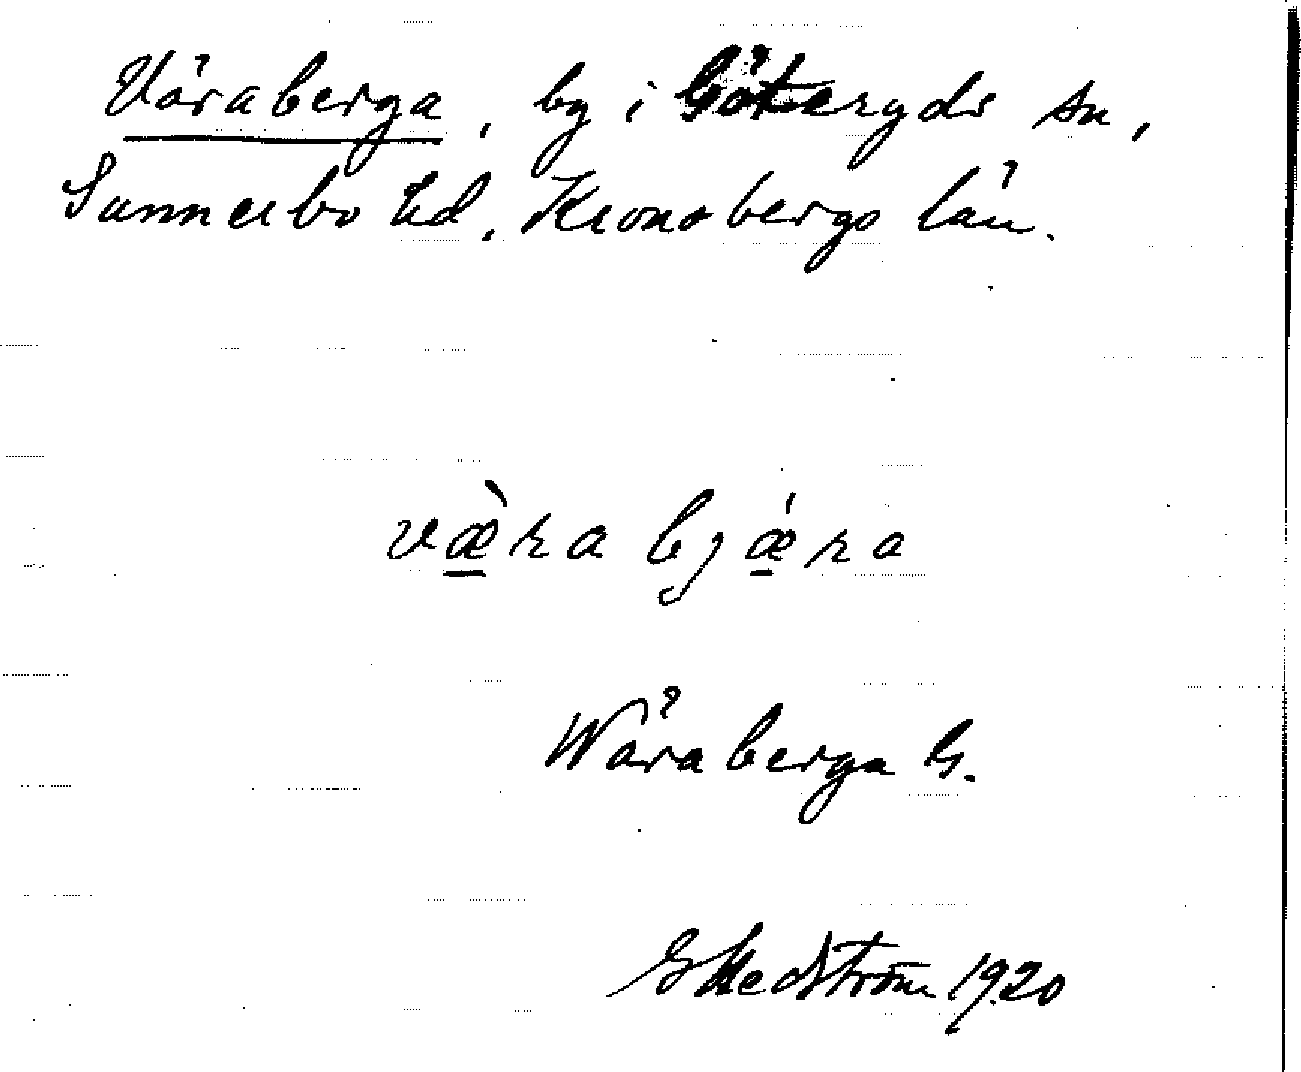 Väraberga, by i Göteryds sn,
Sunnerbo hd. Kronobergs län.
væ̀ra bjǽra
Wäraberga G.
G Hedström 1920